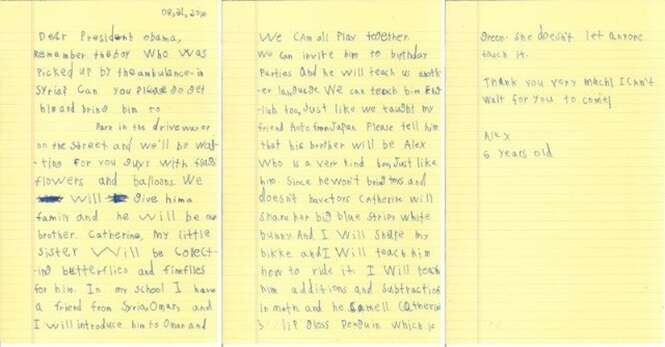 Dear President Obama,
Remember the boy who was
Picked up by the ambulance in
Syria? Can you Please go get
him and bring him to
Park in the driveway or
on the street and we'll be wai
-ting for you guys with flags
flowers and balloons. We
will give him a
family and he will be our
brother. Catherine, my little
sister will be collect-
ing butterflies and fireflies
for him. In my school I have
a friend from Syria, Omar, and
I will introduce him to Omar and
We can all play together.
We can invite him to birthday
Parties and he will teach us anoth-
er language. We can teach him Eng-
lish too, just like we taught my
friend Aoto from Japan. Please tell him
that his brother will be Alex
Who is a very kind boy, just like
him. Since he won't bring toys and
doesn't have toys Catherine will
share her big blue stripy white
bunny. And I will share my
bikke and I will teach him
how to ride it. I will teach
him additions and subtractions
in math and he smell Catherine
's lip gloss Penguin which is
green. She doesn't let anyone
touch it.
Thank you very mach! I can't
wait for you to come!
Alex
6 years old